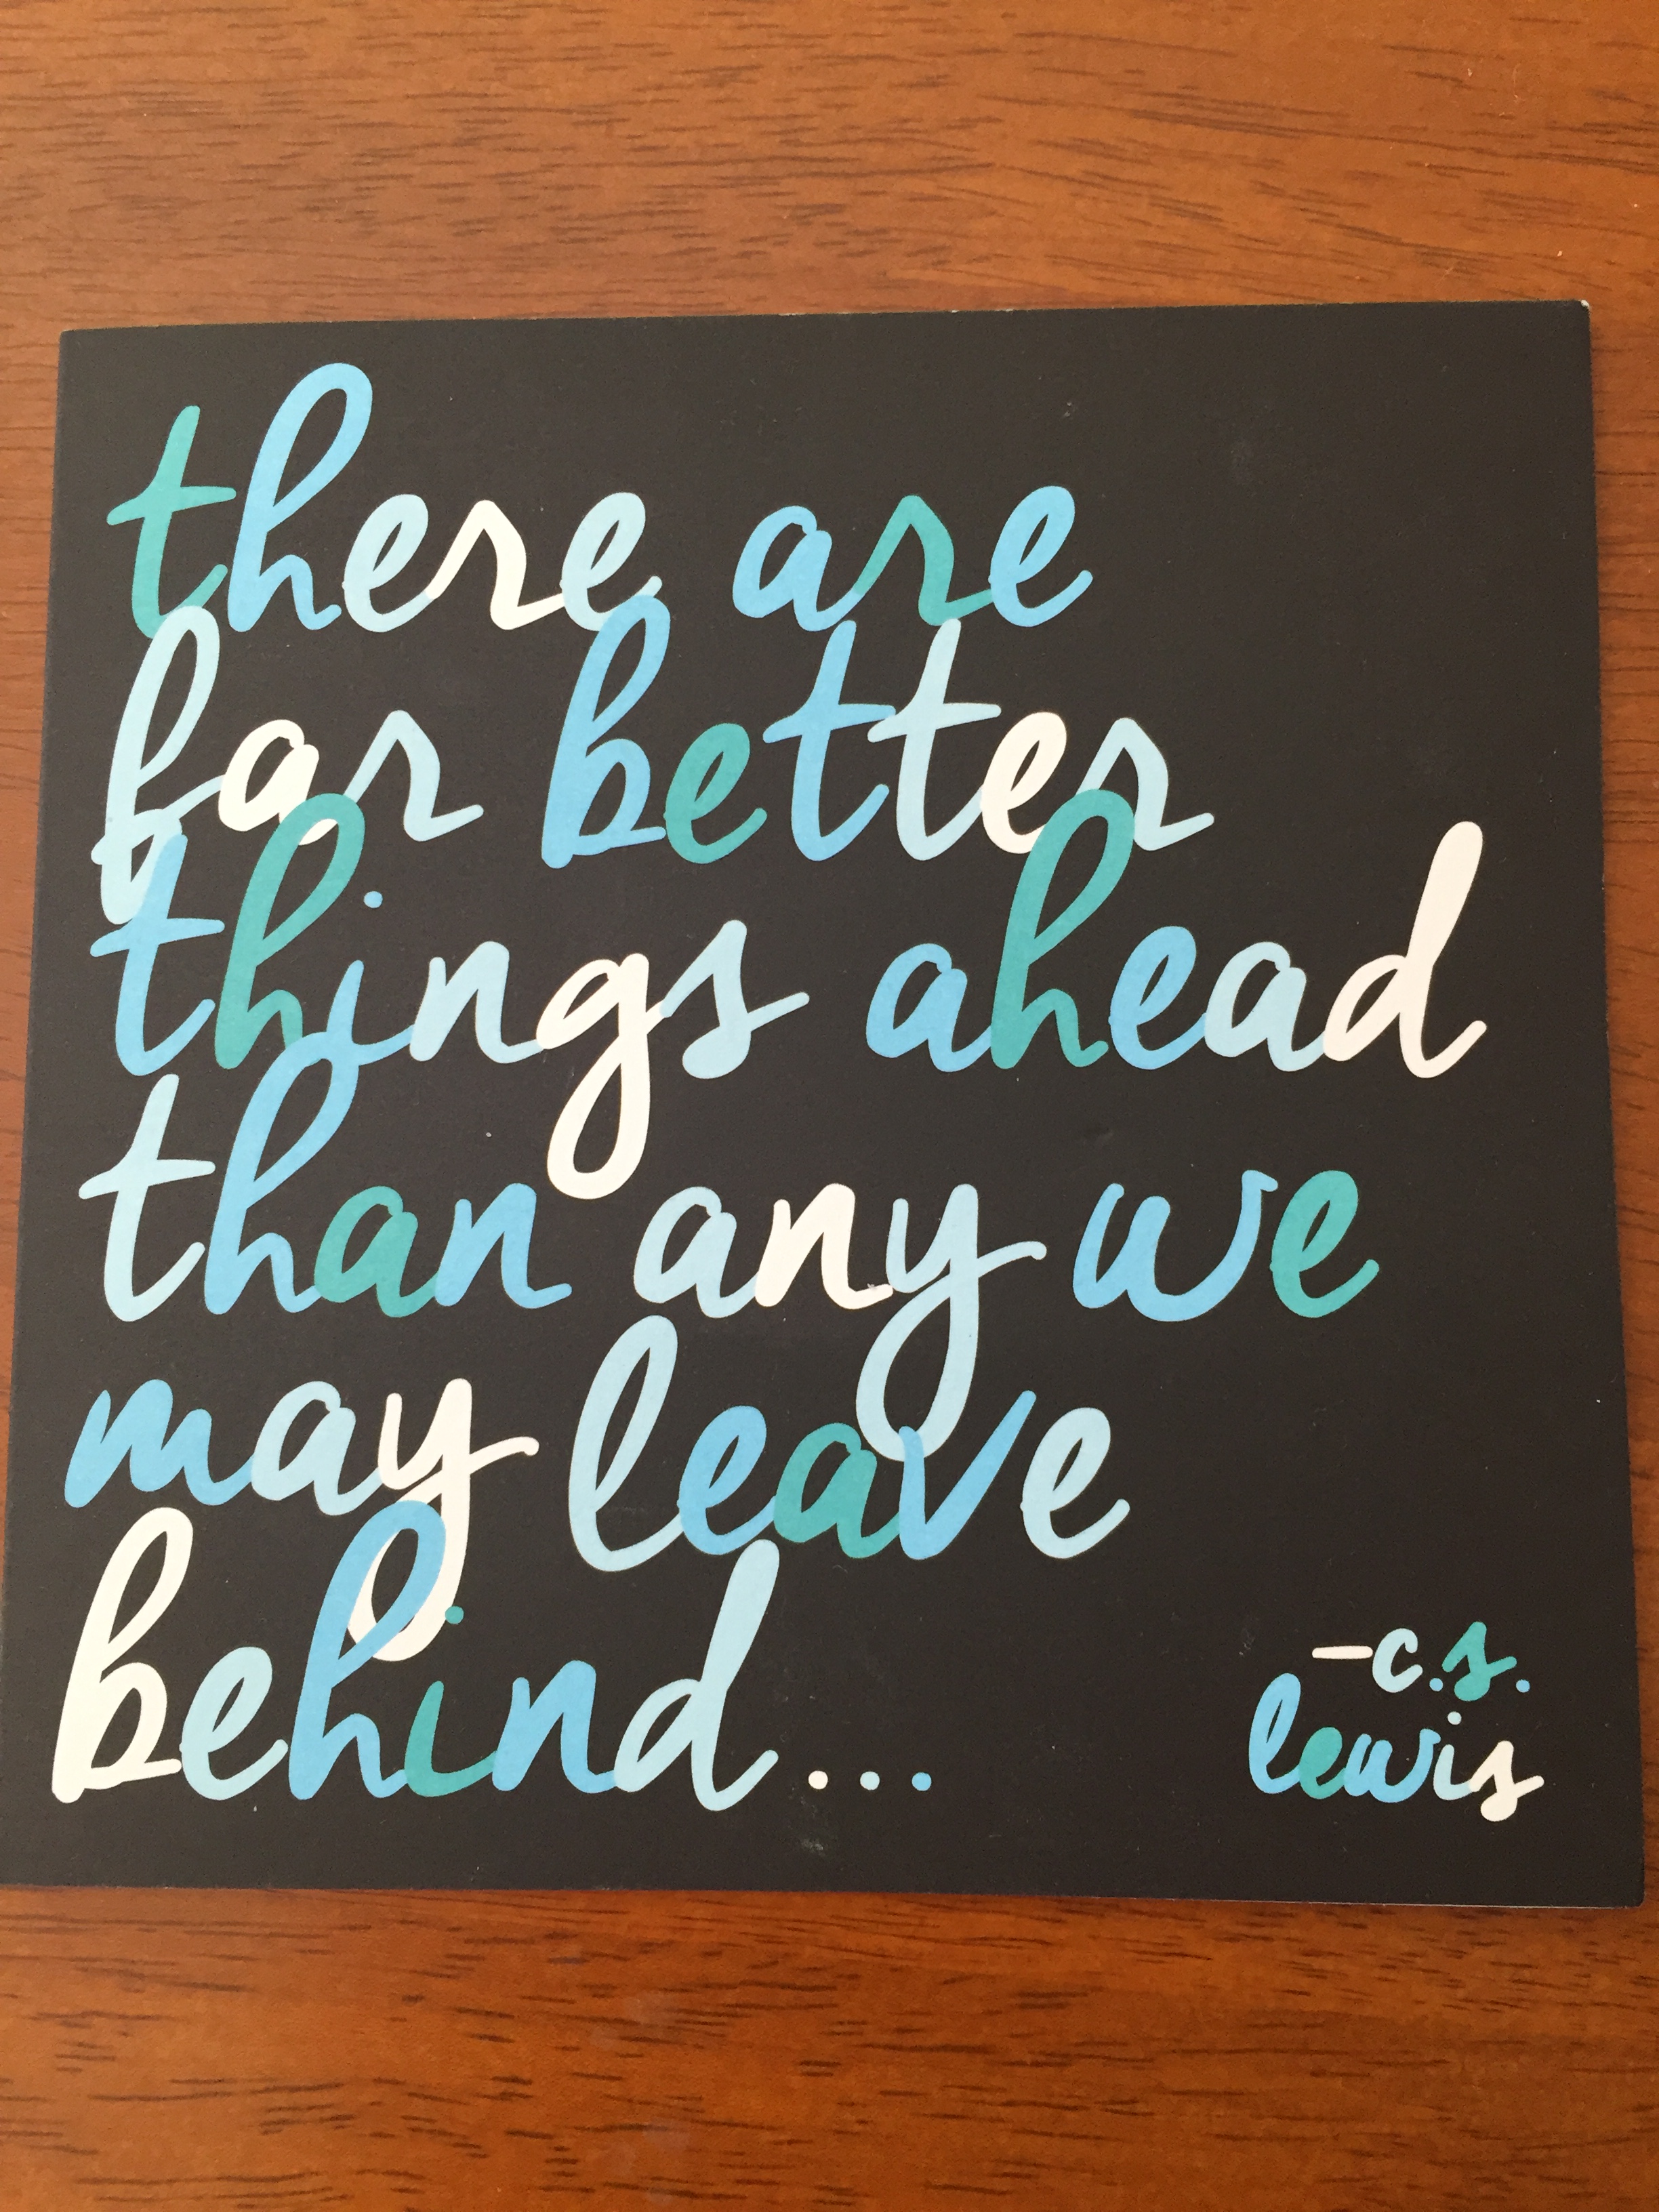 there are
far better
things ahead
than any we
may leave
behind...
-c.s.
lewis